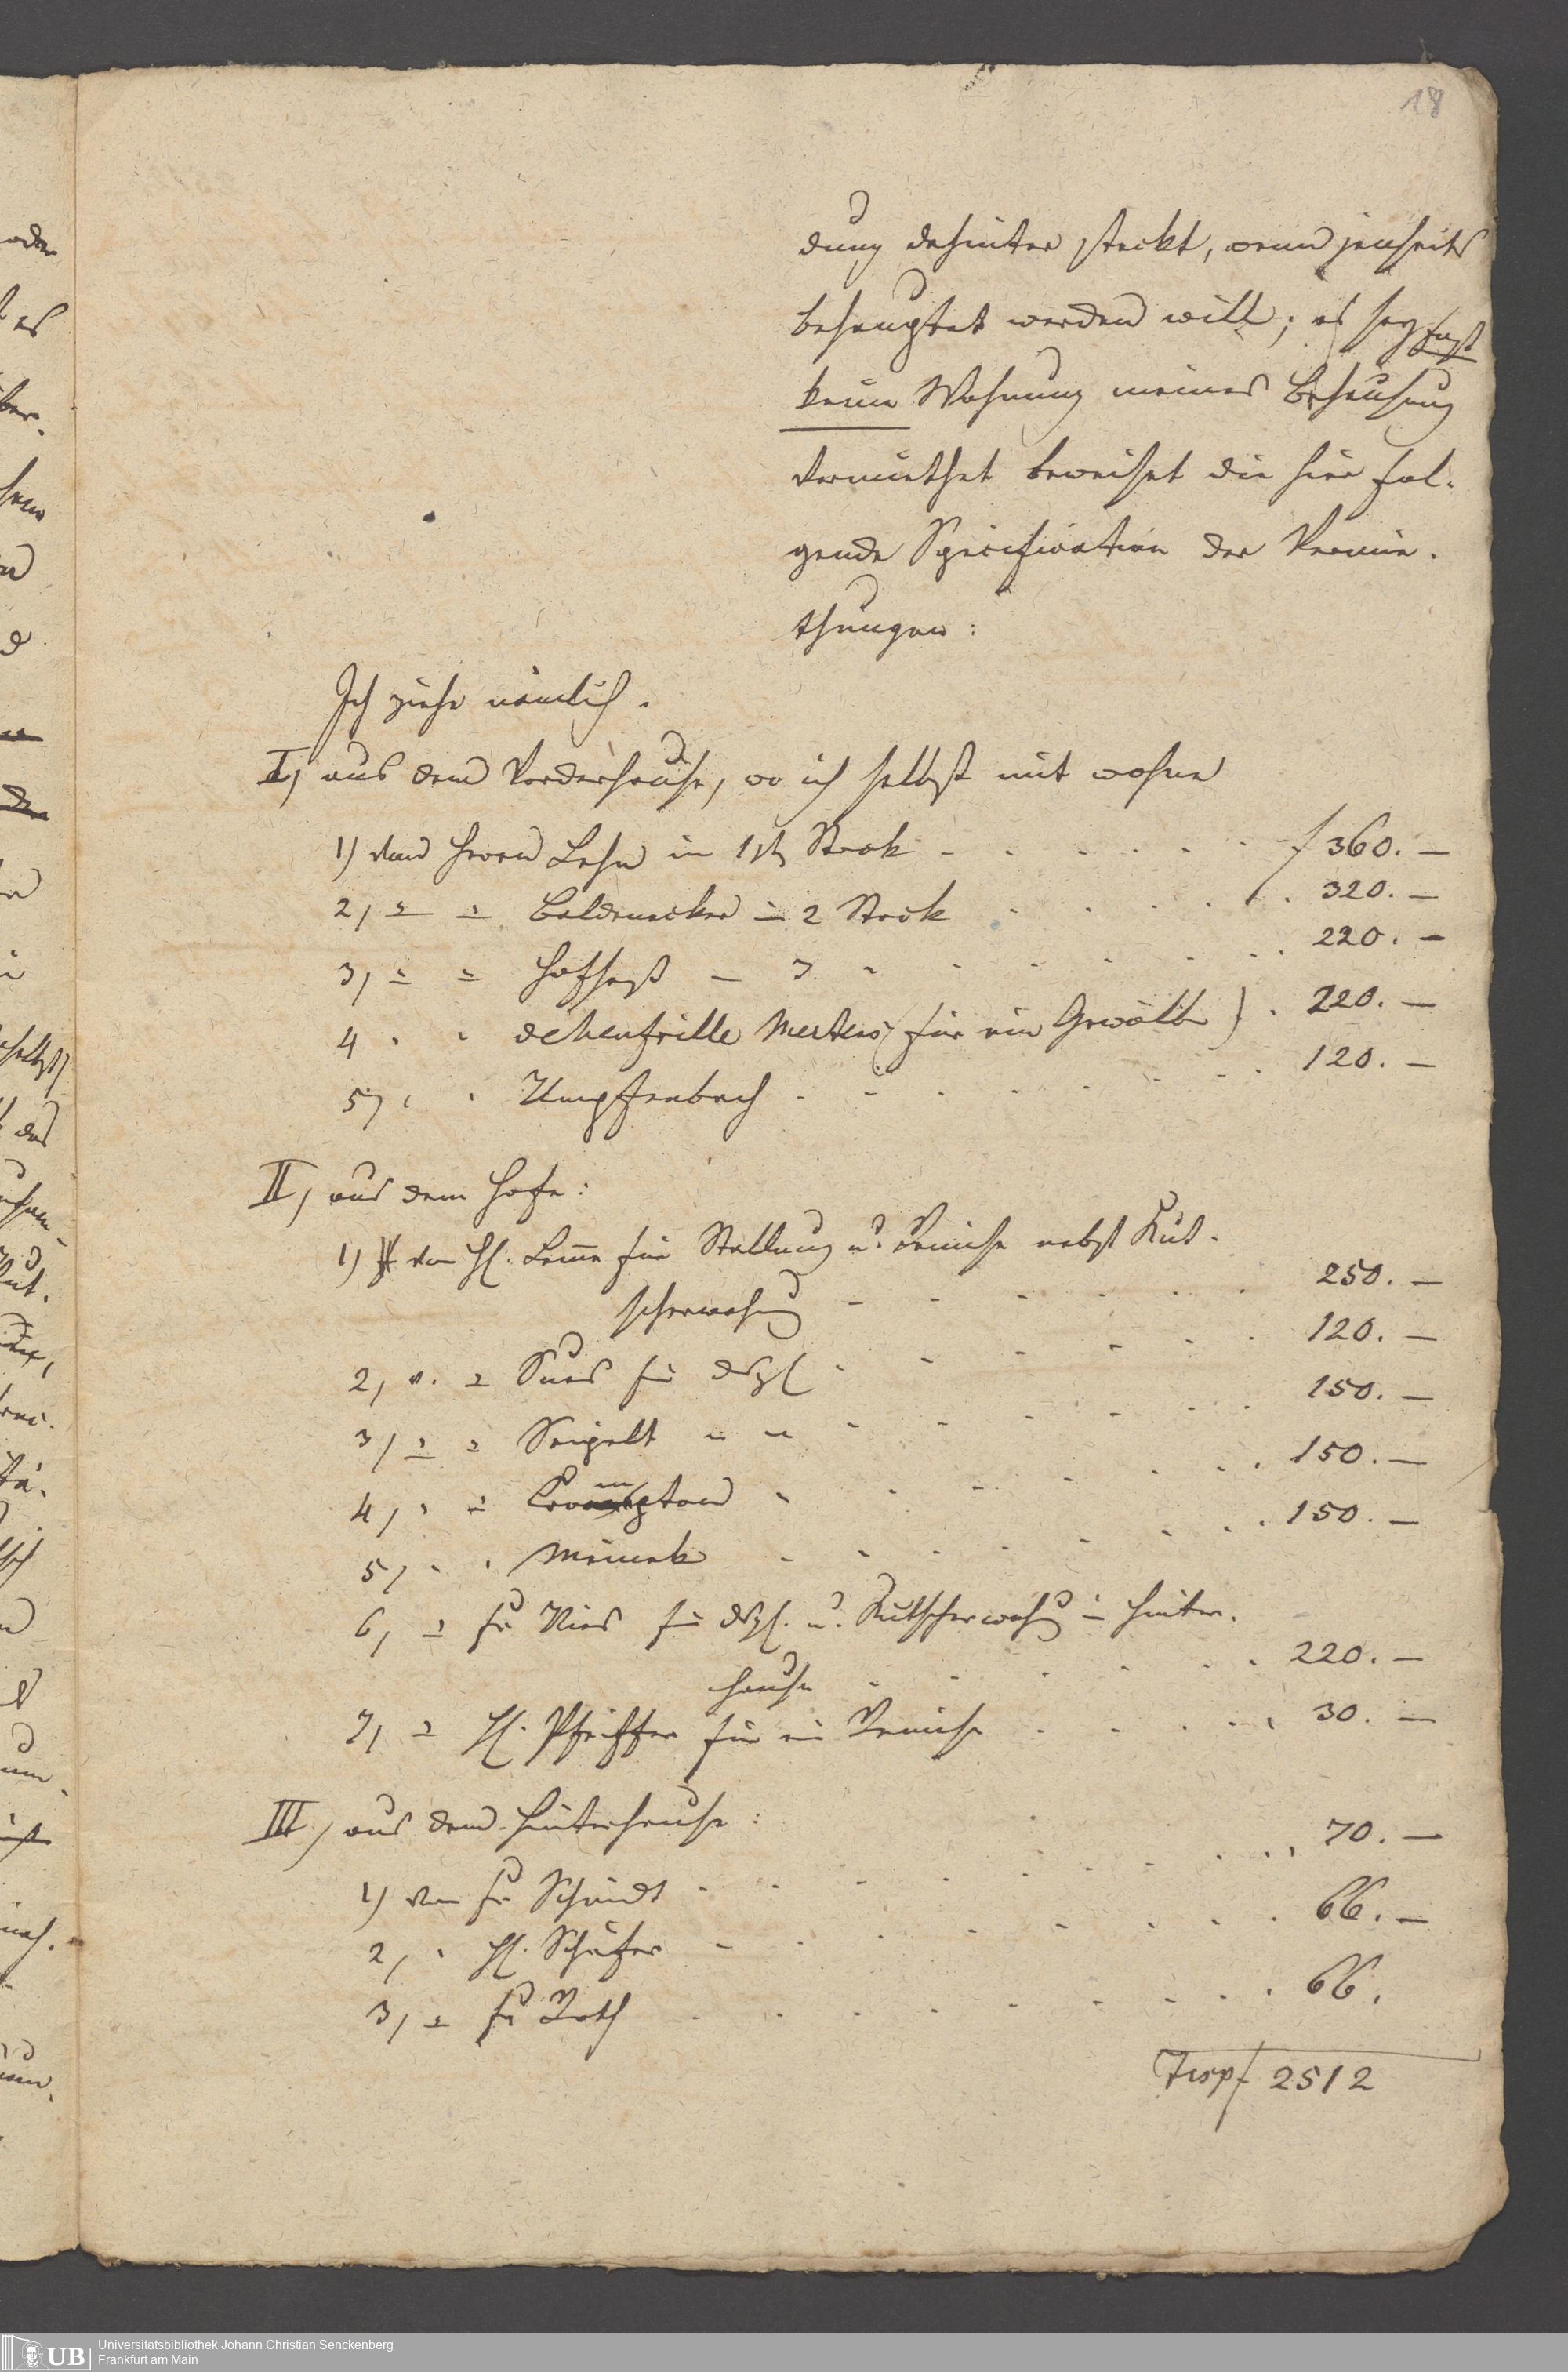 18
dung dahinter steckt, wenn jenseits
behauptet werden will; es sey fast
keine Wohnung meiner Behausung
vermiethet beweiset die hier fol-
gende Specification der Vermie-
thungen:
Ich ziehe nämlich.
I, aus dem Vorderhause, wo ich selbst mit wohne
1) von Herrn Lehn im 1st Stock - - - - - - f 360. —
2, = = Baldenecker = 2 Stock - - - - - 320. —
3, = = Hofseß — 3 " - - - - - 220. —
4 " " Mertens (für ein Gewölbe) . 220. —
5) " " Umpfenbach - - - - - - 120. —
II, aus dem Hofe:
1) von H. für Stallung u. Remise nebst Kut-
scherwohng - - - - - - 250. —
2, v. = Sues für dsgl - - - - - 120. —
3, = = Seigelt " " - - - - - 150. —
4, " = Crompton " - - - - - 150. —
5, " " - - - - - - 150. —
6, = Fr Ries für dsgl. u. Kutscherwohng im Hinter-
hause - - - - - 220. —
7, = H. Pfeiffer für ein Remise - - - - 30. —
III, aus dem Hinterhause:
1) von Fr Schmidt - - - - - - - 70. —
2, " H. Schäfer - - - - - - - 66. —
3, = Fr Roth - - - - - - - 66.
f 2512
UB
Universitätsbibliothek Johann Christian Senckenberg
Frankfurt am Main